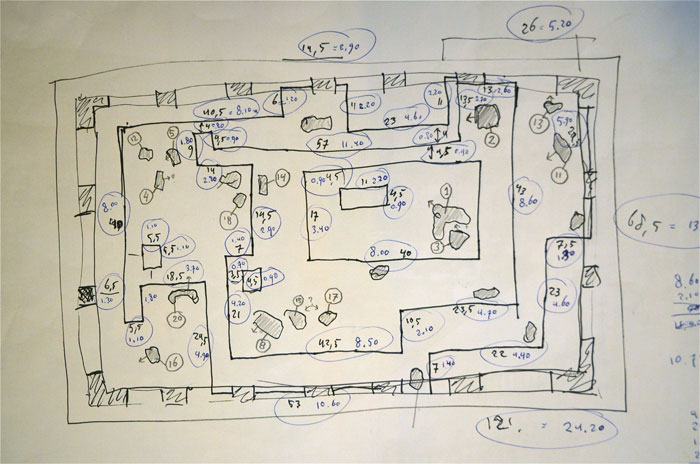 14,5 = 2.90
26 = 5.20
40,5 = 8.10
6 1.20
11 2.20
23 4.60
2.20
11
13 2.60
13,5
2
13
5.90
11
12
5
1.80
9
4,5 0.90
57 11.40
0.80 4
4,5 0.90
4
14
2.80
14
18
14,5
2.90
0.90 4,5
11 2.20
4,5
0.90
1
17
3.40
3
8.00 40
43
8.60
8.00
40
1.10
5,5
5,5 1.10
1.40
7
7,5
68,5 = 13
6,5
1.30
18,5 3.70
20
0.90
3,5
4,5 0.90
4.20
21
23
4.60
23,5 4.70
8.60
2.10
5,5
1.10
16
24,5
4.90
8
?
17
10,5
2.10
42,5 8.50
22 4.40
7 1.40
53 10.60
121. = 24.20